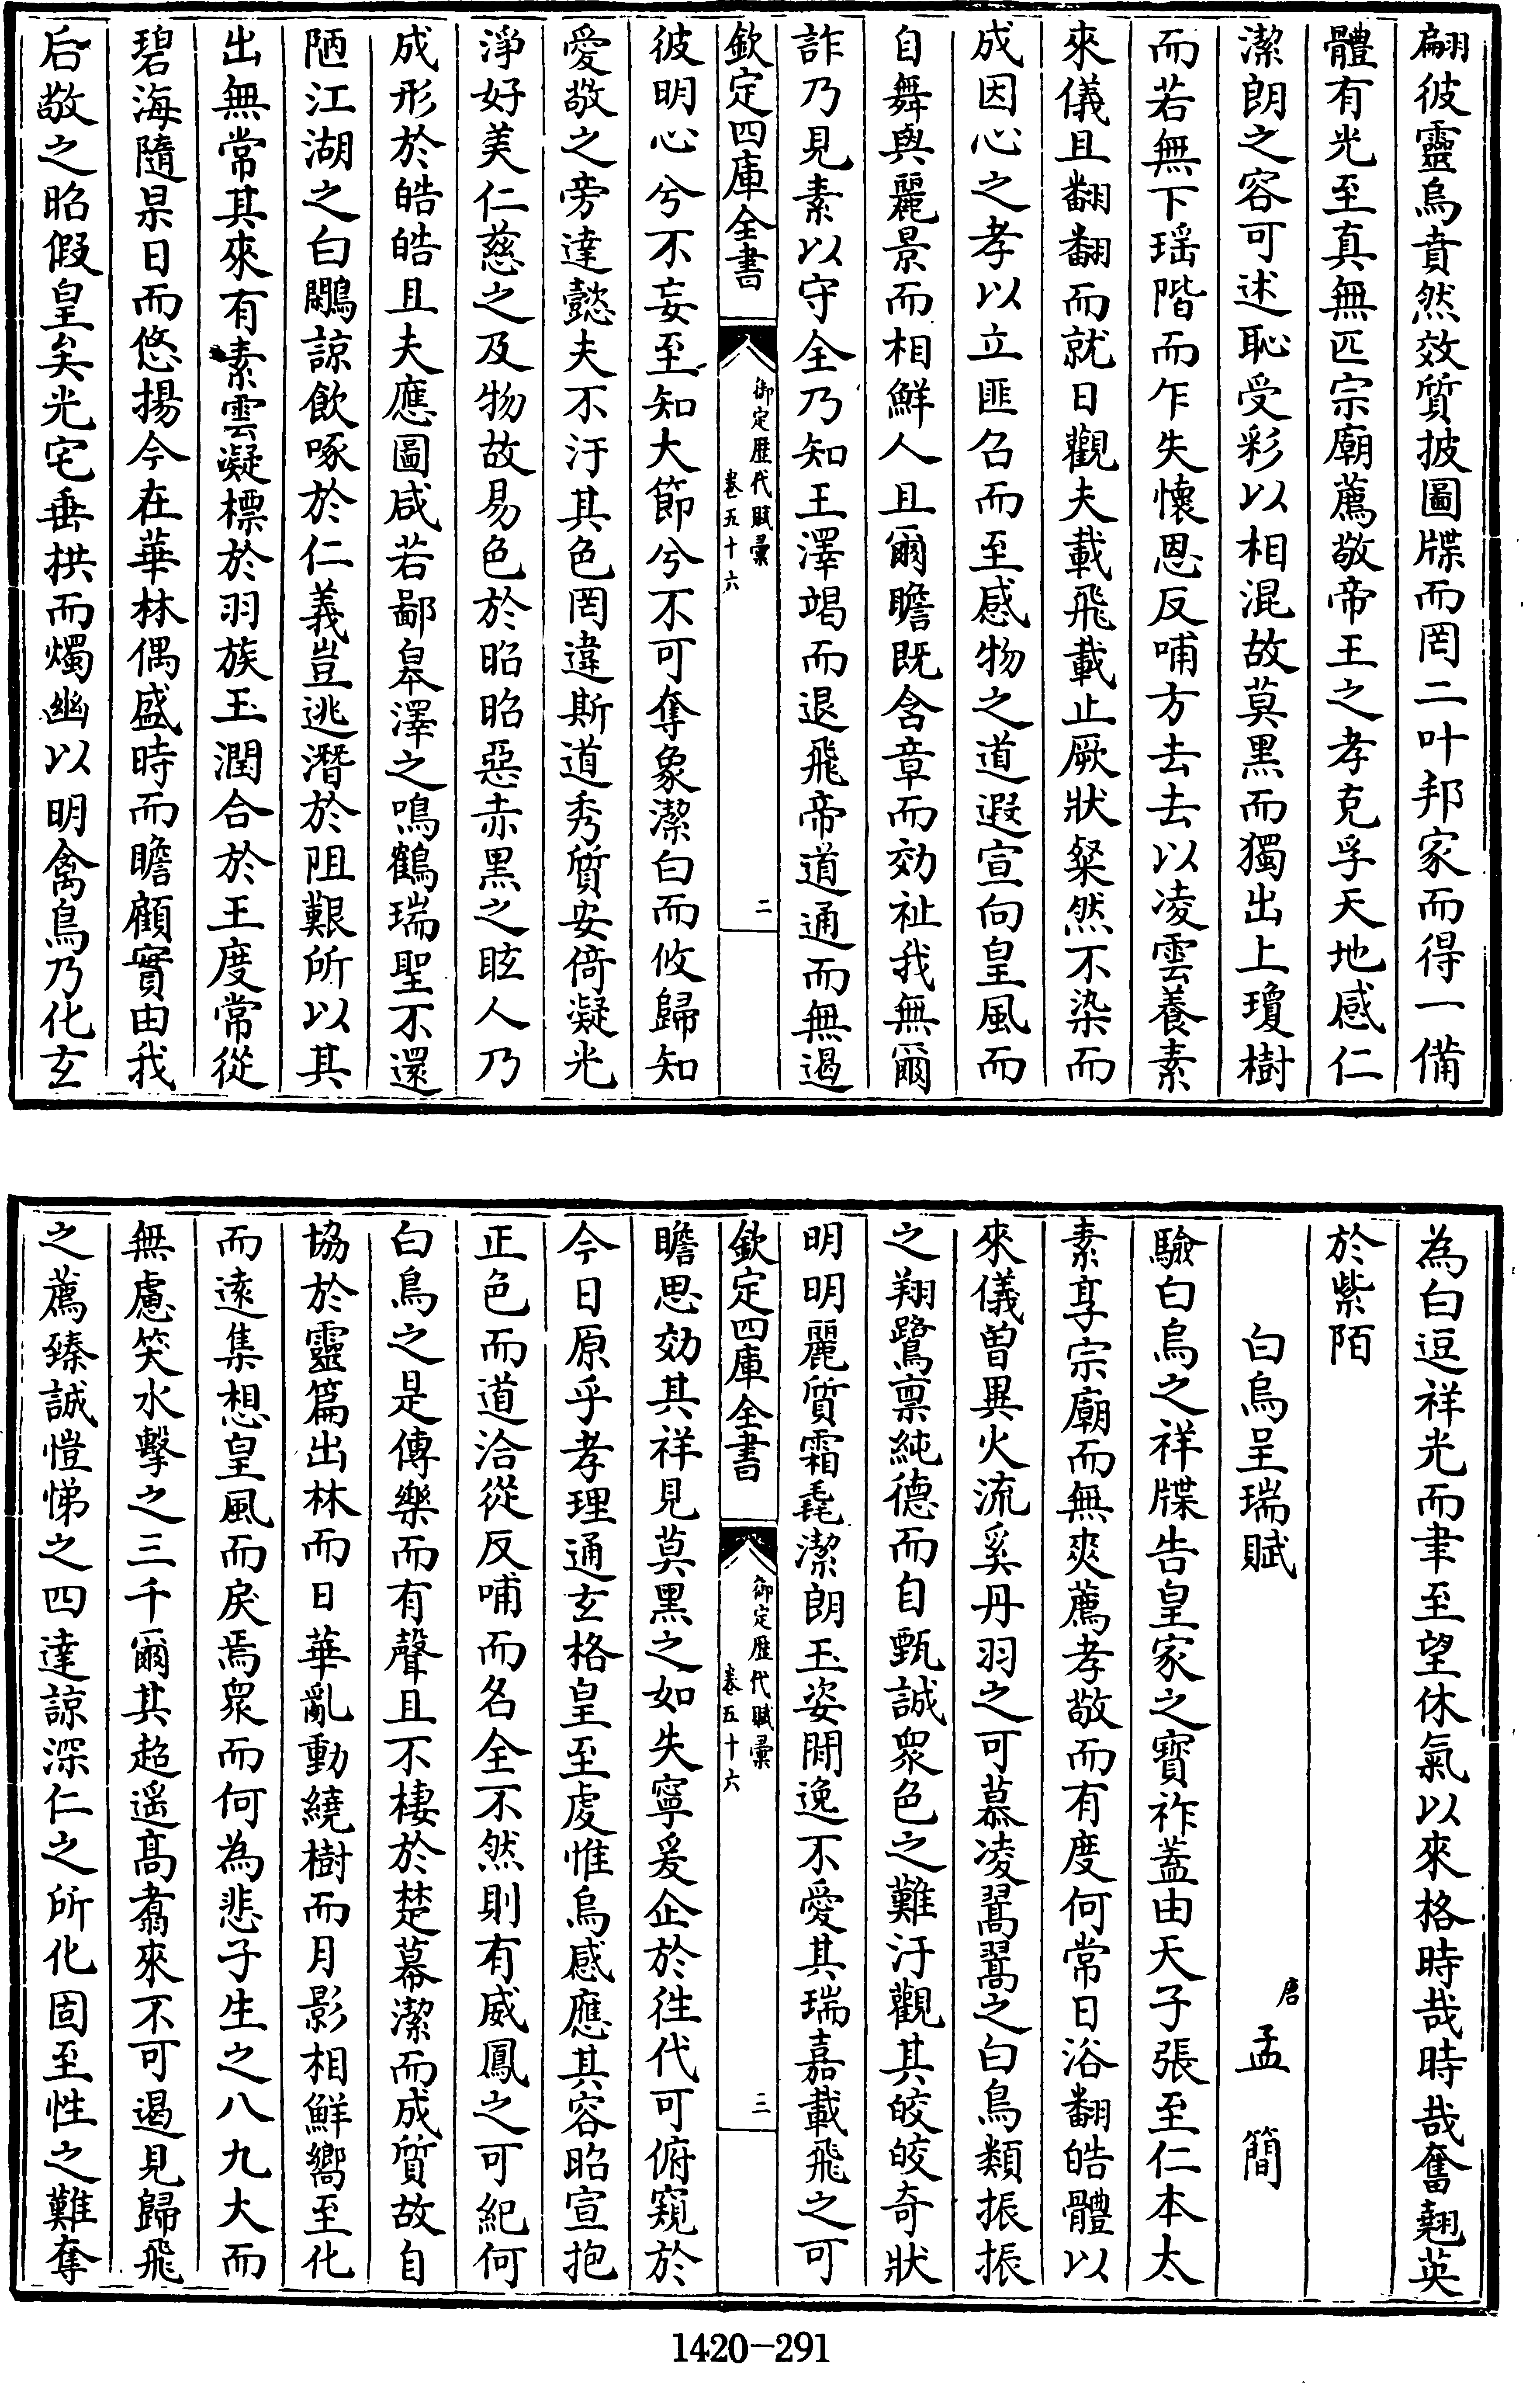 翩彼靈烏賁然效質披圖牒而罔二叶邦家而得一備
體有光至真無匹宗廟薦敬帝王之孝克孚天地感仁
潔朗之容可述恥受彩以相混故莫黑而獨出上瓊樹
而若無下瑶階而乍失懷恩反哺方去去以凌雲養素
來儀且翻翻而就日觀夫載飛載止厥狀粲然不染而
成因心之孝以立匪召而至感物之道遐宣向皇風而
自舞與麗景而相鮮人且爾瞻既含章而効祉我無爾
詐乃見素以守全乃知王澤竭而退飛帝道通而無遏
欽定四庫全書
御定歴代賦彚
卷五十六
二
彼明心兮不妄至知大節兮不可奪象潔白而攸歸知
愛敬之旁達懿夫不汙其色罔違斯道秀質安倚凝光
淨好美仁慈之及物故易色於昭昭惡赤黑之眩人乃
成形於皓皓且夫應圖咸若鄙皋澤之鳴鶴瑞聖不還
陋江湖之白鷴諒飲啄於仁義豈逃潛於阻艱所以其
出無常其來有素雲凝標於羽族玉潤合於王度常從
碧海隨杲日而悠揚今在華林偶盛時而瞻顧實由我
后敬之昭假皇矣光宅垂拱而燭幽以明禽鳥乃化玄
為白逗祥光而聿至望休氣以來格時哉時哉奮翹英
於紫陌
白烏呈瑞賦
唐 孟簡
驗白烏之祥牒告皇家之寳祚蓋由天子張至仁本太
素享宗廟而無爽薦孝敬而有度何常日浴翻皓體以
來儀曽異火流奚丹羽之可慕凌翯翯之白鳥類振振
之翔鷺禀純德而自甄誠衆色之難汙觀其皎皎奇狀
明明麗質霜毳潔朗玉姿閒逸不愛其瑞嘉載飛之可
欽定四庫全書
御定歴代賦彚
卷五十六
三
瞻思効其祥見莫黑之如失寧爰企於徃代可俯窺於
今日原乎孝理通玄格皇至處惟烏感應其容昭宣抱
正色而道洽從反哺而名全不然則有威鳳之可紀何
白鳥之是傳樂而有聲且不棲於楚幕潔而成質故自
協於靈篇出林而日華亂動繞樹而月影相鮮嚮至化
而逺集想皇風而戾焉衆而何為悲子生之八九大而
無慮笑水擊之三千爾其超遥髙翥來不可遏見歸飛
之薦臻誠愷悌之四達諒深仁之所化固至性之難奪
1420-291